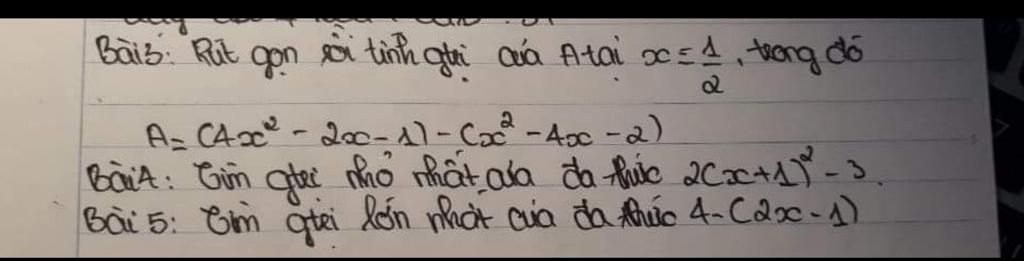 Bài 3: Rút gọn rồi tính gtrị của A tại x = 1/2, trong đó
A = (4x² - 2x - 1) - (x² - 4x - 2)
Bài 4: Tìm gtrị nhỏ nhất của đa thức 2(x + 1)² - 3.
Bài 5: Tìm gtrị lớn nhất của đa thức 4 - (2x - 1)